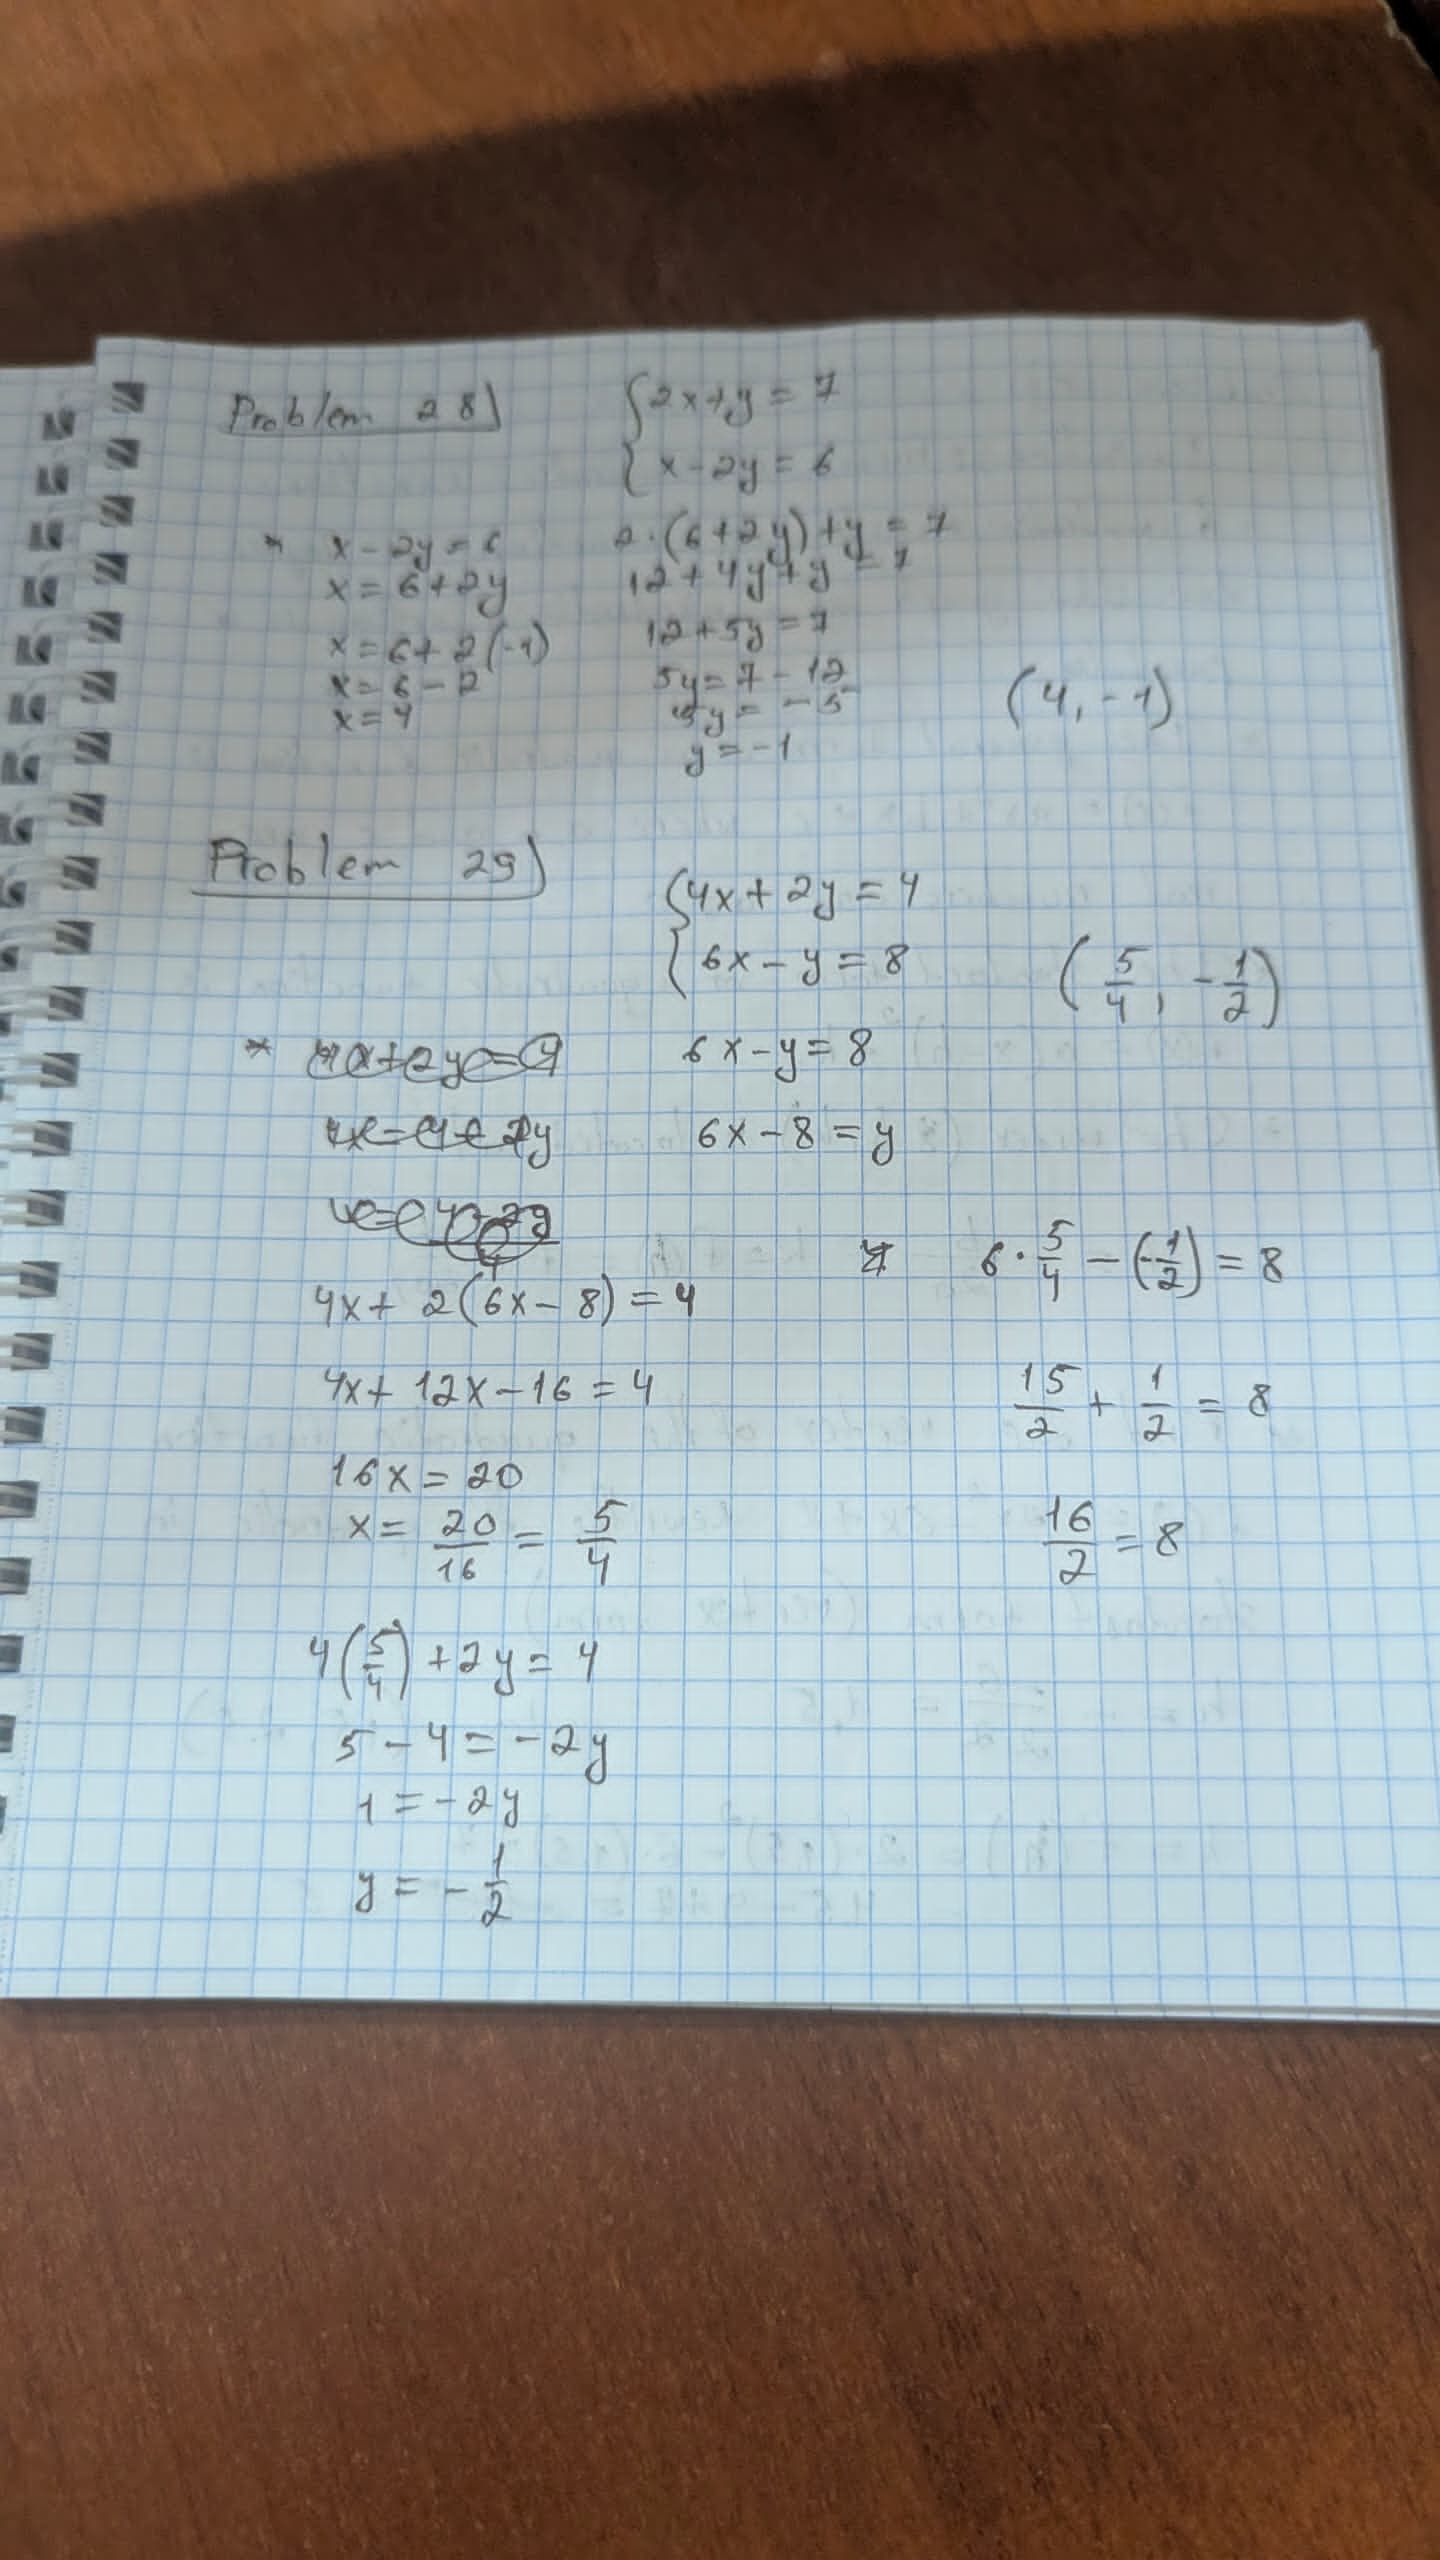 Problem 28)
{ 2x+y = 7
x-2y = 6
* x-2y=6
x=6+2y
x=6+2(-1)
x=6-2
x=4
2·(6+2y)+y=7
12+4y+y=7
12+5y=7
5y=7-12
5y=-5
y=-1
(4,-1)
Problem 29)
{ 4x+2y=4
6x-y=8
(5/4, -1/2)
* 4x+2y=4
4x=4-2y
6x-y=8
6x-8=y
4x+2(6x-8)=4
4x+12x-16=4
16x=20
x=20/16=5/4
4(5/4)+2y=4
5-4=-2y
1=-2y
y=-1/2
* 6·5/4-(-1/2)=8
15/2+1/2=8
16/2=8